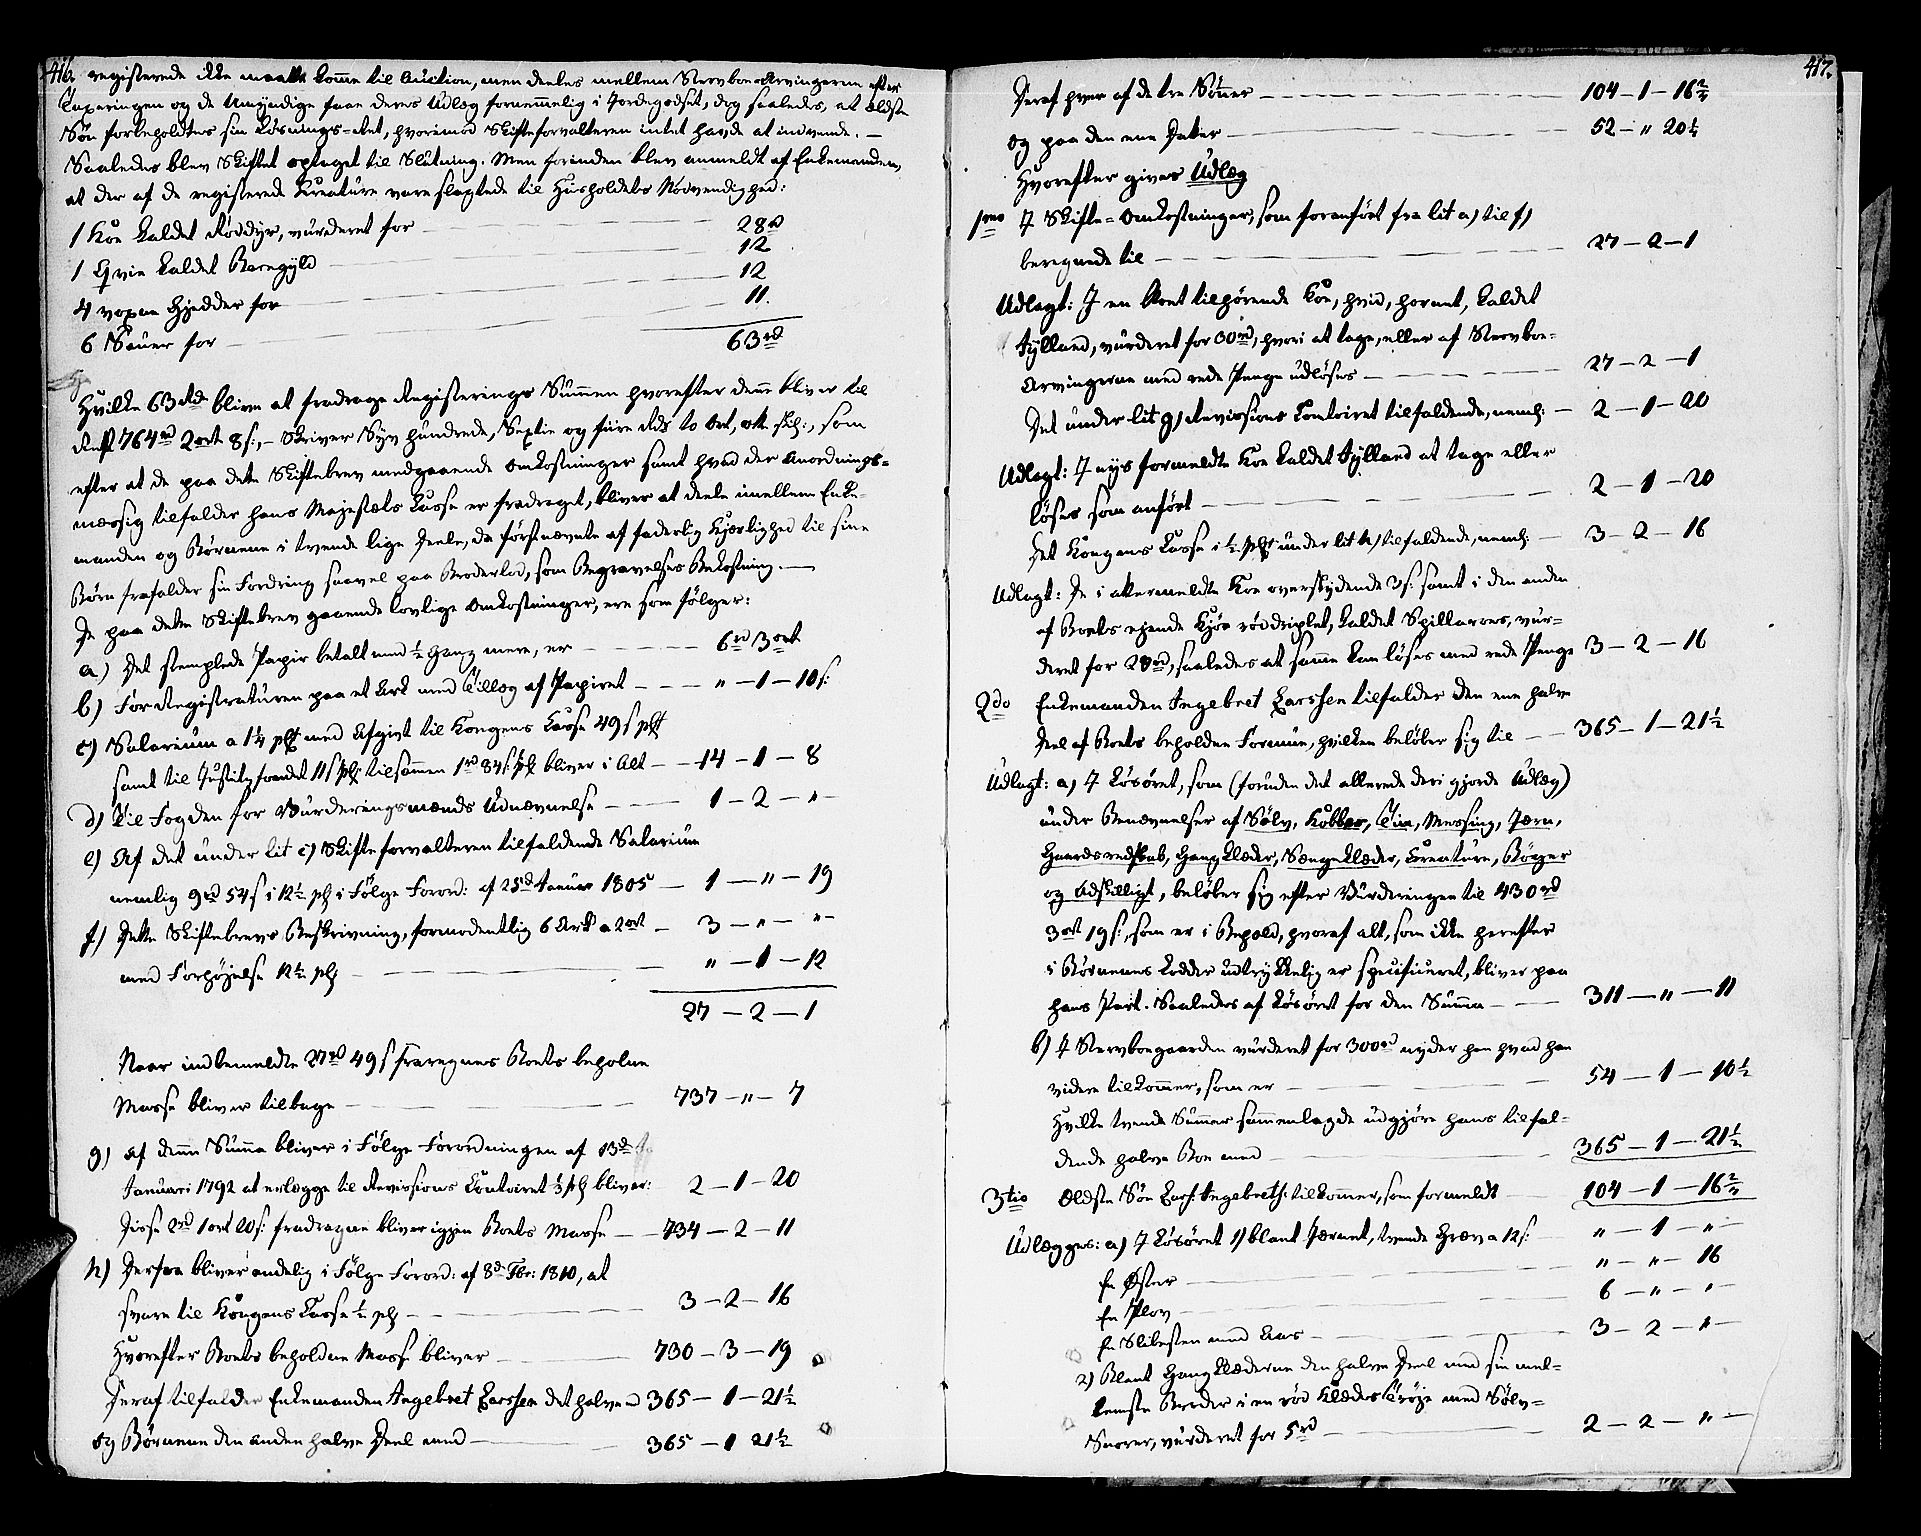 416.
registerede ikke maatte komme til Auction, men deeles mellem Stervboe-Arvingerne efter
Taxeringen og de Umyndige faae deres Udlæg fornemmelig i Jordegodset, dog saaledes, at ældste
Søn forbeholdtes sin Løsnings-Ret, hvorimod Skifteforvalteren intet havde at indvende. —
Saaledes blev Skiftet optaget til Slutning. Men forinden blev anmeldt af Enkemanden,
at der af de registerede Creature vare slagtede til Husholdets Nødvendighed:
1 Koe kaldet Røddyr, vurderet for — 28 rd
1 Qvie kaldet Borngyld — 12
4 voxne Gjedder for — 12
6 Sauer for — 11.
63 rd
Hvilke 63 Rd blive at fradrage Registerings Summen hvorefter denne bliver til
Rest 764 rd 2 ort 8 s:, — skriver Syv hundrede, Sextie og fiire Rd to Ort, otte sk:, som
efter at de paa dette Skiftebrev medgaaende Omkostninger samt hvad der Anordnings-
mæssig tilfalder hans Majestæts Casse er fradraget, bliver at deele imellem Enke-
manden og Børnene i tvende lige Deele, da førstnævnte af faderlig Kjærlighed til sine
Børn frafalder sin Fordring saavel paa Broderlod, som Begravelses Bekostning. —
De paa dette Skiftebrev gaaende lovlige Omkostninger, ere som følger:
a) Det stemplede Papir betalt med ½ gang mere, er — 6 rd 3 ort
b) For Registraturen paa et Ark med Tillæg af Papiret — " — 1 — 10 s:
c) Salarium a 1¼ pCt med Afgivt til Kongens Casse 49 s pCt
samt til Justitzfondet 11 s pCt tilsammen 1 rd 84 s pCt bliver i Alt — 14 — 1 — 8
d) Til Fogden for Vurderingsmænds Udnævnelse — 1 — 2 — "
e) Af det under lit c) Skifteforvalteren tilfaldende Salarium
nemlig 9 rd 54 s i 12½ pC i Følge Forord: af 25d Januar 1805 — 1 — " — 19
f) Dette Skiftebrevs Beskrivning, formodentlig 6 Ark a 2 ort — 3 — " — "
med Forhøjelse 12½ pC — " — 1 — 12
27 — 2 — 1
Naar indbemeldte 27 rd 49 s fraregnes Boets beholdne
Masse bliver tilbage — 737 — " — 7
g) af denne Summa bliver i Følge Forordningen af 13de
Januari 1792 at erlægge til Revisions Contoiret ⅓ pC bliver: 2 — 1 — 20
Disse 2 rd 1 ort 20 s: fradragne bliver igjen Boets Masse — 734 — 2 — 11
h) Derfra bliver endelig i Følge Forord: af 8d Fbr: 1810, at
svare til Kongens Casse ½ pC — 3 — 2 — 16
Hvorefter Boets beholdne Masse bliver — 730 — 3 — 19
Deraf tilfalder Enkemanden Ingebret Larssen det halve 365 — 1 — 21½
og Børnene den anden halve Deel med — 365 — 1 21½
417.
Deraf hver af de tre Sønner — 104 — 1 — 16 2/7
og paa den ene Datter — 52 — " 20½
Hvorefter gives Udlæg
1mo I Skifte-Omkostninger, som foranført fra lit a) til f)
beregnede til — 27 — 2 — 1
Udlagt: I en Boet tilhørende Koe, hvid, hornet, kaldet
Fylland, vurderet for 30 rd, hvori at tage, eller af Stervboe-
Arvingerne med rede Penge udløses — 27 — 2 — 1
Det under lit g) Revissions Contoiret tilfaldende, neml: — 2 — 1 — 20
Udlagt: I nysformeldte Koe kaldet Fylland at tage eller
løses som anført — 2 — 1 — 20
Det Kongens Casse i ½ pCt under lit h) tilfaldende, neml: — 3 — 2 — 16
Udlagt: De i altermeldte Koe overskydende 3 s: samt i den anden
af Boets ejende Kjør rød driplet, kaldet Spillaroes, vur-
deret for 28 rd, saaledes at samme kan løses med rede Penge 3 — 2 — 16
2do Enkemanden Ingebret Larssen tilfalder den ene halve
Deel af Boets beholdne Formue, hvilken beløber sig til — 365 — 1 — 21½
Udlagt: a) I Løsøret, som (foruden det allerede deri gjorde Udlæg)
under Benævnelser af Sølv, Kobber, Tin, Messing, Jærn,
Gaardsredskab, Gangklæder, Sængeklæder, Creature, Bøger
og Adskilligt, beløber sig efter Vurderingen til 430 rd
3 ort 19 s:, som er i Behold, hvoraf alt, som ikke herefter
i Børnenes Lodder udtrykkelig er specificeret, bliver paa
hans Part. Saaledes af Løsøret for den Summa — 311 — " — 11
b) I Stervboegaarden vurderet for 300 rd nyder han hvad han
videre tilkommer, som er — 54 — 1 — 10½
Hvilke tvende Summer sammenlagde udgjøre hans tilfal-
dende halve Boe med — 365 — 1 — 21½
3tio Ældste Søn Lars Ingebretss: tilkommer, som formeldt — 104 — 1 — 16 2/7
Udlægges: a) I Løsøret 1) blant Jærnet, tvende Græv a 12 s: " — 1 — "
En Øster — " — " — 16
En Plov — 6 — " — "
En Slibesten med Aas — 3 — 2 — "
2) Blant Gangklæderne den halve Deel med sin mel-
lemste Broder i en rød Klædes Trøje med Sølv-
Snorer, vurderet for 5 rd — 2 — 2 — "